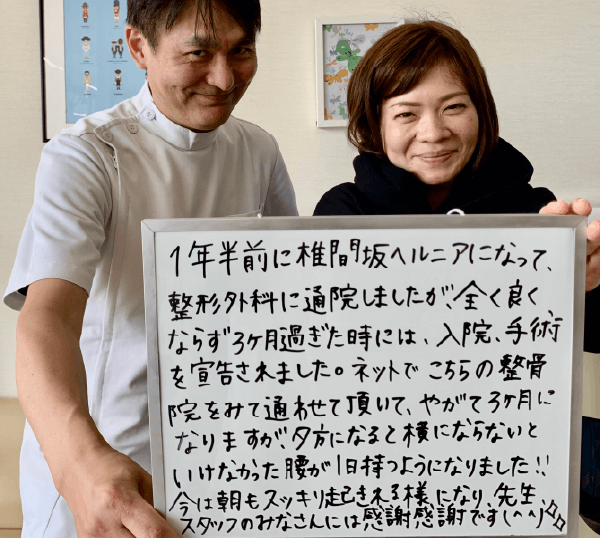 1年半前に椎間坂ヘルニアになって、
整形外科に通院しましたが、全く良く
ならず3ヶ月過ぎた時には、入院、手術
を宣告されました。ネットでこちらの整骨
院をみて通わせて頂いて、やがて3ヶ月に
なりますが夕方になると横にならないと
いけなかった腰が1日持つようになりました!!
今は朝もスッキリ起きれる様になり、先生、
スタッフのみなさんには感謝感謝です(^^)